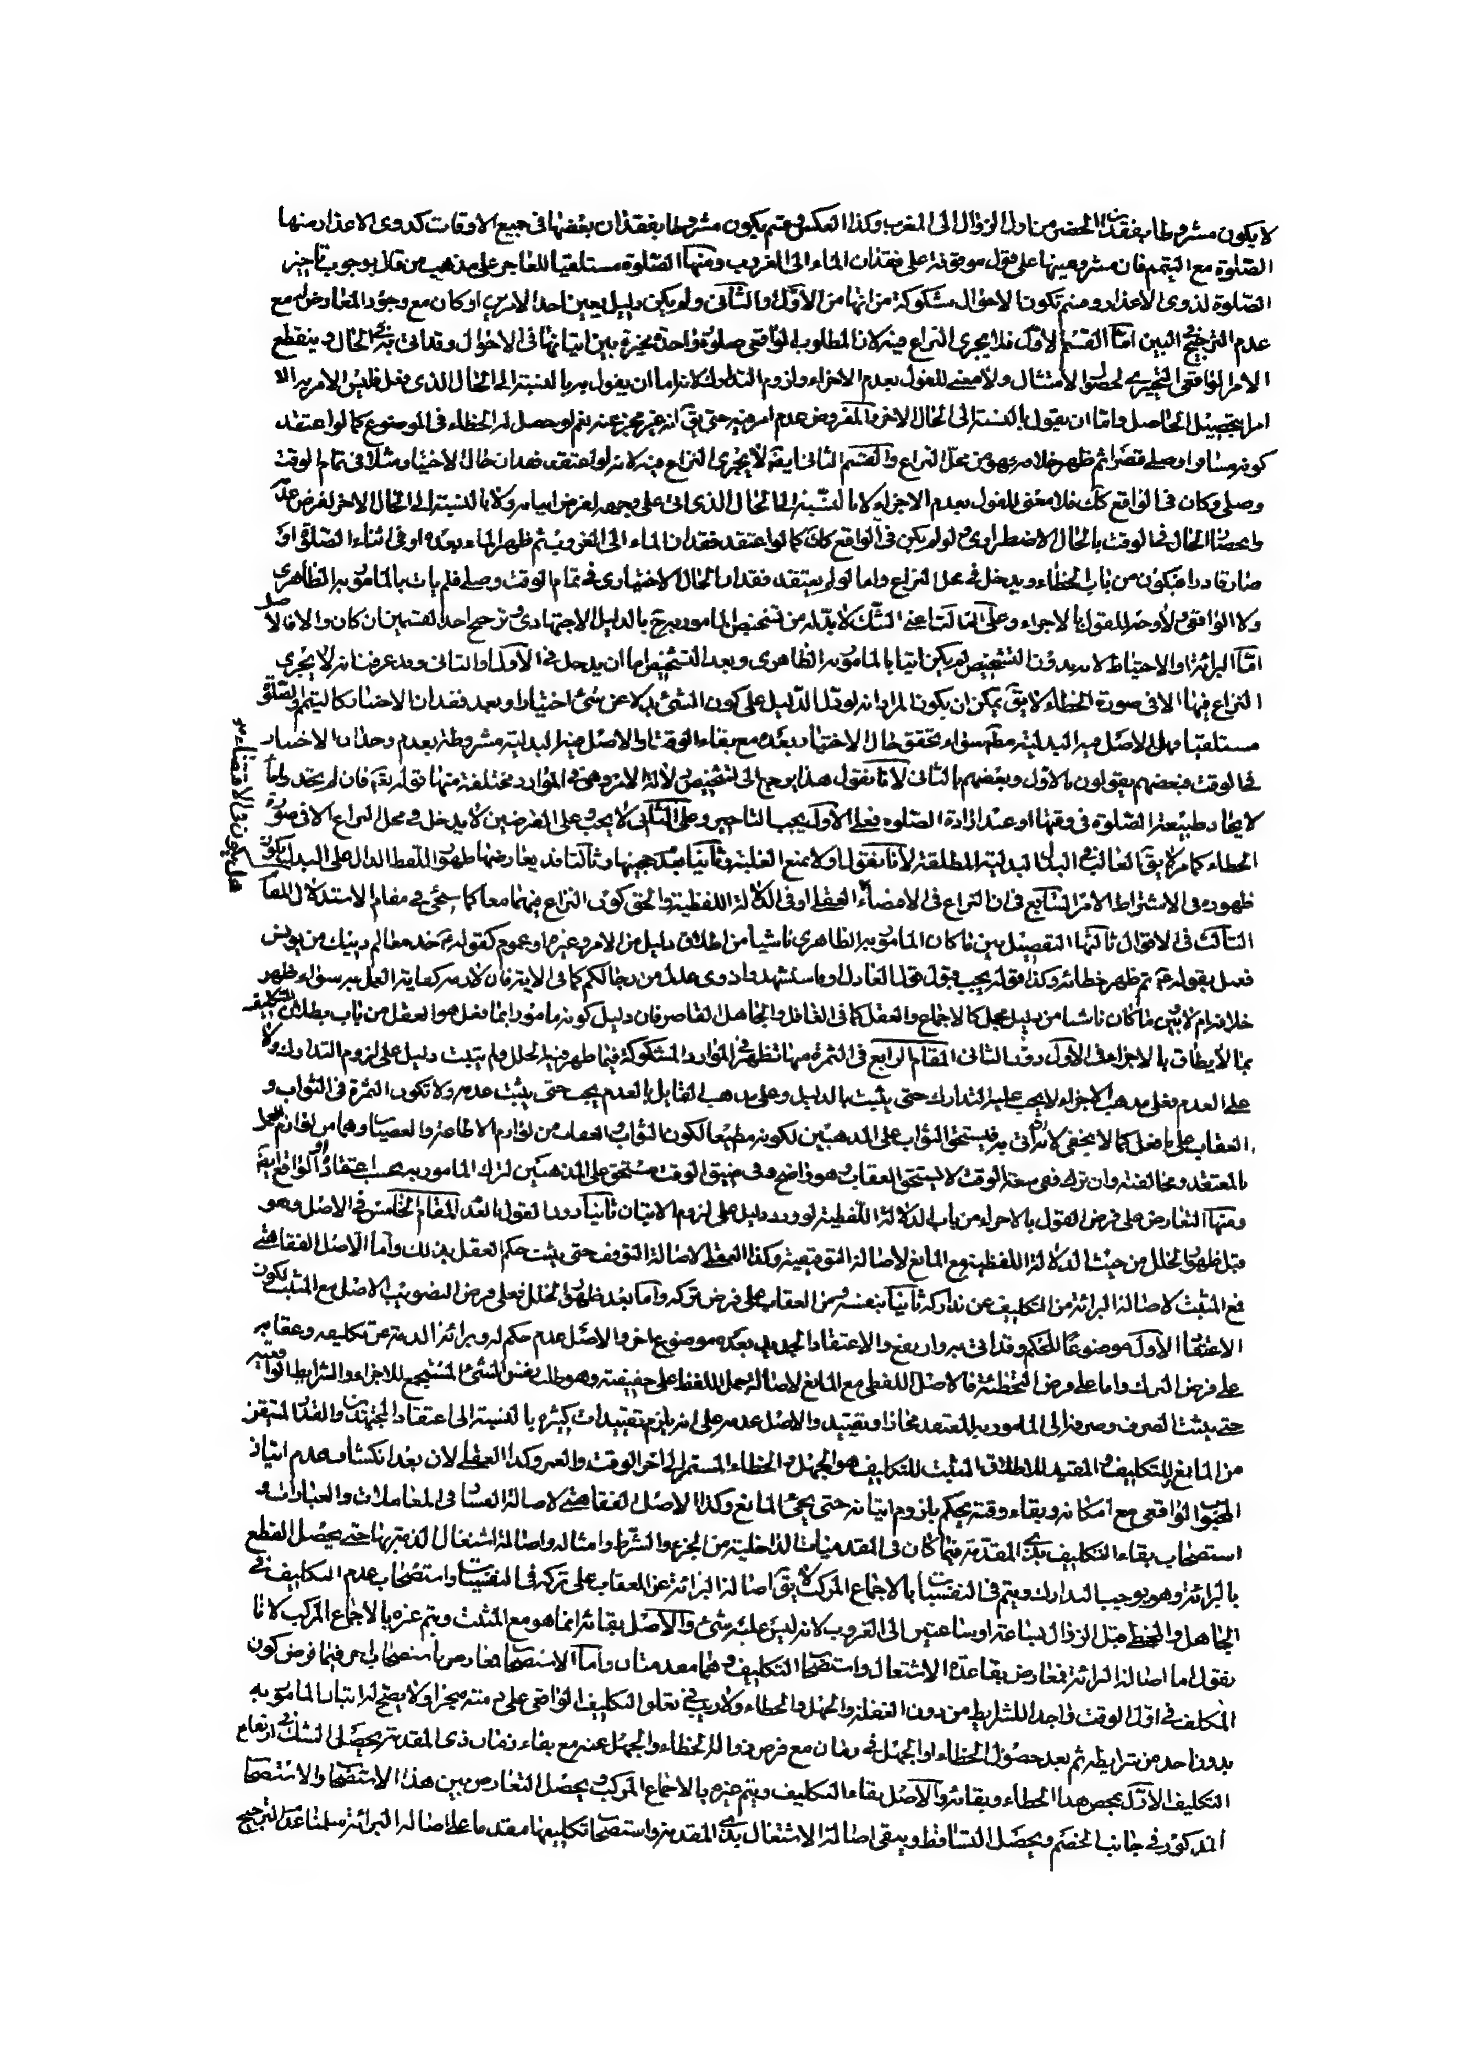 لا يكون مشروطا بفقدان الحضر من اول الزوال الى المغرب وكذا العكس وقسم يكون مشروطا بفقدان بعضها في جميع الاوقات كذوى الاعذار منها
الصلوة مع التيمم فان مشروعيتها على قول موقوفة على فقدان الماء الى الغروب ومنها الصلوة مستلقيا للعاجز على مذهب من قال بوجوب تأخير
الصلوة لذوى الاعذار ومنهم تكون الاحوال مشكوكة من انها من الأول والثانى ولم يكن دليل يعين احد الامرين او كان مع وجود المعارض له مع
عدم الترجيح البين امّا القسم الاول فلا يجرى النزاع فيه لان المطلوب الواقعى صلوة واحدة مخيرة بين اتيانها فى الاحوال وقد اتى به فى الحال وينقطع
الامر الواقعى التخييرى لحصول الامتثال ولا معنى للقول بعدم الاجزاء ولزوم التدارك لانه اما ان يقول به بالنسبة الى الحال الذى فعل فليس الامر به الا
امرا بتحصيل الحاصل واما ان يقول بالنسبة الى الحال الاخر والمفروض عدم امر فيه حتى يق انه غير مجز عنه نعم لو حصل له الخطاء فى الموضوع كما لو اعتقد
كونه مسافرا وصلى قصرا ثم ظهر خلافه فهو من محل النزاع والقسم الثانى ايضا لا يجرى النزاع فيه لانه لو اعتقد فقدان حال الاختيار مثلا فى تمام الوقت
وصلى وكان فى الواقع كك فلا معنى للقول بعدم الاجزاء لا بالنسبة الى الحال الذى اتى على وجهه لفرض اتيانه ولا بالنسبة الى الحال الاخر لفرض عدم
وانحصار الحال فى الوقت بالحال الاضطرارى ولو لم يكن فى الواقع كك كما لو اعتقد فقدان الماء الى الغروب ثم ظهر الماء بعده او فى اثناء الصلوة او
صار قادرا فيكون من باب الخطاء ويدخل فى محل النزاع واما لو لم يعتقد فقدان الحال الاختيارى فى تمام الوقت وصلى فلم يات بالمامور به الظاهرى
ولا الواقعى ولا وجه للقول بالاجزاء وعلى الثالث اعنى الشك لا بد له من تشخيص المامور به بالدليل الاجتهادى وترجيح احد القسمين ان كان والا فالاصل
امّا البرائة او الاحتياط لانه بدون التشخيص لم يكن اتيا بالمامور به الظاهرى وبعد التشخيص اما ان يدخل فى الاول او الثانى وقد عرفت انه لا يجرى
النزاع فيها الا فى صورة الخطاء لا يق يمكن ان يكون المراد انه لو دل الدليل على كون الشئ بدلا عن شئ اختيارا وبعد فقدان الاختيار كالتيمم والصلوة
مستلقيا فهل الاصل فيه البدلية مطلقا سواء تحقق حال الاختيار بعده مع بقاء الوقت او الاصل فيه البدلية مشروطة بعدم وجدان الاختيار
فى الوقت فبعضهم يقولون بالاول وبعضهم بالثانى لانا نقول هذا يرجع الى تشخيص دلالة الامر وهى فى الموارد مختلفة منها قوله تعالى فان لم تجدوا ماء
لايجاد طبيعة الصلوة فى وقتها او عند ارادة الصلوة فعلى الاول يجب التاخير وعلى الثانى لا يجب وعلى الفرضين لا يدخل فى محل النزاع الا فى صورة
الخطاء كما مر لا يق الغالب فى البدل البدلية المطلقة لانا نقول اولا بمنع الغلبة وثانيا بمنع حجيتها وثالثا قد يعارضها ظهور اللفظ الدال على البدلية
ظهوره فى الاشتراط الامر السابع فى ان النزاع فى الاقتضاء العقلى او فى الدلالة اللفظية والحق كون النزاع فيهما معا كما سيجئ فى مقام الاستدلال المقام
هل يكون فى الاقتضاء
الثالث فى الاقوال ثالثها التفصيل بين ما كان المامور به الظاهرى ناشيا من اطلاق دليل من الامر وغيره او عموم كقوله خذ معالم دينك من يونس
فعمل بقوله ثم ظهر خطائه وكذا قوله يجب قبول قول العادل او ما ستشهدوا ذوى عدل من رجالكم كما فى الاية فان لازمه كفاية العمل به سواء ظهر
خلافه ام لا وبين ما كان ناشيا من دليل مجمل كالاجماع والعقل كما فى الغافل والجاهل القاصر فان دليل كونه مامورا بما فعل هو العقل من باب بطلان التكليف
بما لا يطاق بالاجزاء فى الاول دون الثانى المقام الرابع فى الثمرة منها تظهر فى الموارد المشكوكة فيما ظهر فيه الخلل ولم يثبت دليل على لزوم التدارك ولا
على العدم فعلى مذهب الاجزاء لا يجب عليه التدارك حتى يثبت بالدليل وعلى مذهب القايل بالعدم يجب حتى يثبت عدمه ولا تكون الثمرة فى الثواب و
العقاب على ما فعل كما لا يخفى لانه اتى به فيستحق الثواب على المذهبين لكونه مطيعا لكون الثواب والعقاب من لوازم الاطاعة والعصيان وهما من لوازم العمل
بالمعتقد ومخالفته وان ترك ففى سعة الوقت لا يستحق العقاب وهو واضح وفى ضيق الوقت مستحق على المذهبين لترك المامور به بحسب اعتقاده او الواقع ايضا
ومنها التعارض على فرض القول بالاجزاء من باب الدلالة اللفظية لو ورد دليل على لزوم الاتيان ثانيا دون القول بالعدم المقام الخامس فى الاصل وهو
قبل ظهور الخلل من حيث الدلالة اللفظية مع المانع لاصالة التوقيفية وكذا العقلى لاصالة التوقف حتى يثبت حكم العقل بذلك واما الاصل الفقاهتى
فمع المثبت لاصالة البرائة من التكليف عن تداركه ثانيا بنفسه ومن العقاب على فرض تركه واما بعد ظهور الخلل فعلى فرض التصويب الاصل مع المثبت لكون
الاعتقاد الاول موضوعا للحكم وقد اتى به وارتفع والاعتقاد الجديد بعده موضوع اخر والاصل عدم حكم له وبرائة الذمة عن تكليفه وعقابه
على فرض الترك واما على فرض التخطئة فالاصل اللفظى مع المانع لاصالة حمل اللفظ على حقيقته وهو طلب نفس الشئ المستجمع للاجزاء والشرايط الواقعية
حتى يثبت الصرف وصرفه الى المامور به المعتقد مجازا او تقييد والاصل عدمه على انه يلزم تقييدات كثيرة بالنسبة الى اعتقاد المجتهدين والقدر المتيقن
من المانع للتكليف والمقيد للاطلاق المثبت للتكليف هو الجهل والخطاء المستمر الى اخر الوقت والعمر وكذا العقلى لان بعد انكشاف عدم اتيان
المحبوب الواقعى مع امكانه وبقاء وقته يحكم بلزوم اتيانه حتى يجئ المانع وكذا الاصل الفقاهتى لاصالة الفساد فى المعاملات والعبادات و
استصحاب بقاء التكليف بذى المقدمة فيما كان فى المقدميات الداخلية من الجزء والشرط وامثاله واصالة اشتغال الذمة بها حتى يحصل القطع
بالبرائة وهو يوجب التدارك ويتم فى النفسيات بالاجماع المركب لا يق اصالة البرائة عن العقاب على تركه فى النفسيات واستصحاب عدم التكليف فى
الجاهل والمخطى قبل الزوال بساعة او ساعتين الى الغروب لانه ليس عليه شئ والاصل بقائه انما هو مع المثبت ويتم غيره بالاجماع المركب لانا
نقول اما اصالة البرائة فمعارض بقاعدة الاشتغال واستصحاب التكليف وهما مقدمتان واما الاستصحاب فمعارض باستصحاب اخر فيما فرض كون
المكلف فى اول الوقت واجدا للشرايط من دون الغفلة والجهل والخطاء ولا ريب فى تعلق التكليف الواقعى على ذمته منجزا ولا يصح له اتيان المامور به
بدون احد من شرايطه ثم بعد حصول الخطاء او الجهل فى زمان مع فرض زوال الخطاء والجهل عنه مع بقاء زمان ذى المقدمة يحصل الشك فى ارتفاع
التكليف الاول بمحض هذا الخطاء وبقائه والاصل بقاء التكليف ويتم غيره بالاجماع المركب ويحصل التعارض بين هذا الاستصحاب والاستصحاب
المذكور فى جانب الخصم ويحصل التساقط ويبقى اصالة الاشتغال بذى المقدمة واستصحاب تكليفها مقدما على اصالة البرائة سلمنا عدم الترجيح